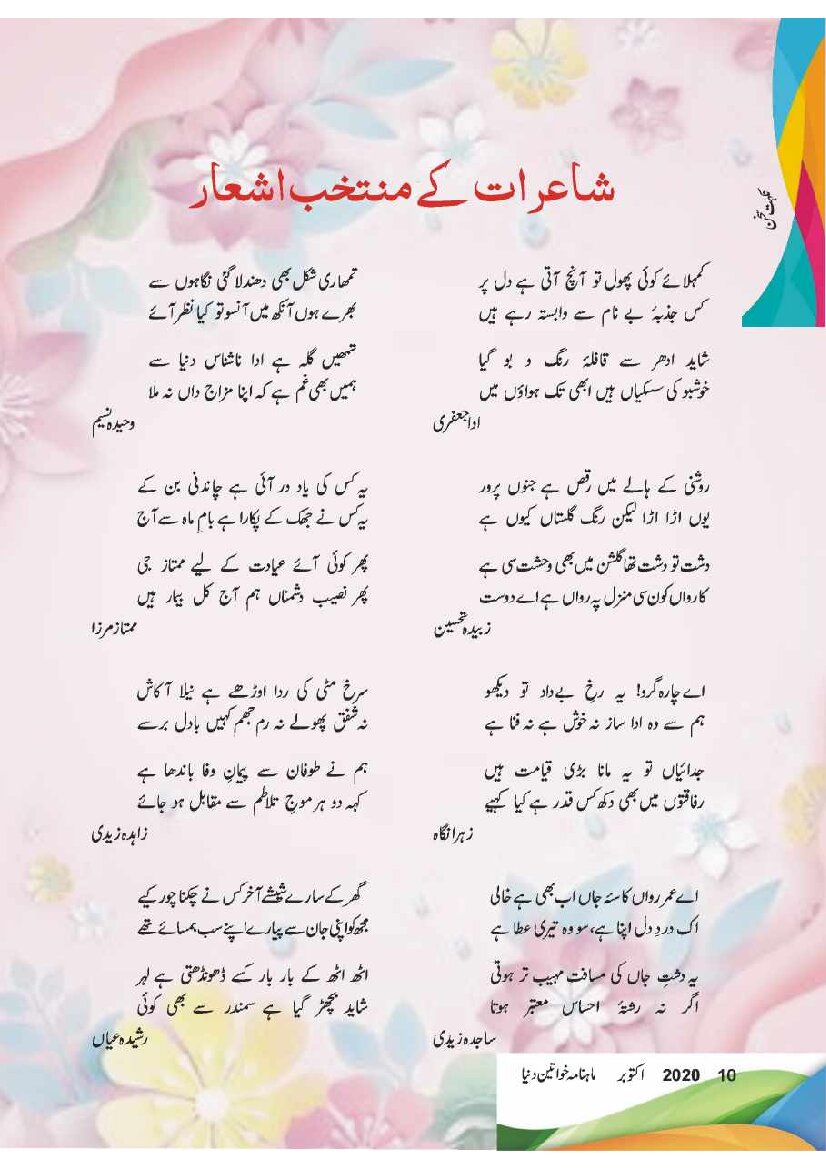 شاعرات کے منتخب اشعار
نکہت سخن
کمہلائے کوئی پھول تو آنچ آتی ہے دل پر
کس جذبۂ بے نام سے وابستہ رہے ہیں
شاید ادھر سے قافلۂ رنگ و بو گیا
خوشبو کی سسکیاں ہیں ابھی تک ہواؤں میں
ادا جعفری
روشنی کے ہالے میں رقص ہے جنوں پرور
یوں اڑا اڑا لیکن رنگ گلستاں کیوں ہے
دشت تو دشت تھا گلشن میں بھی وحشت سی ہے
کارواں کون سی منزل پہ رواں ہے اے دوست
زبیدہ تحسین
اے چارہ گرو! یہ رخِ بےداد تو دیکھو
ہم سے وہ ادا ساز نہ خوش ہے نہ خفا ہے
جدائیاں تو یہ مانا بڑی قیامت ہیں
رفاقتوں میں بھی دکھ کس قدر ہے کیا کہیے
زہرا نگاہ
اے عمر رواں کاسۂ جاں اب بھی ہے خالی
اک دردِ دل اپنا ہے، سو وہ تیری عطا ہے
یہ دشتِ جاں کی مسافت مہیب تر ہوتی
اگر نہ رشتۂ احساس معتبر ہوتا
ساجدہ زیدی
تمھاری شکل بھی دھندلا گئی نگاہوں سے
بھرے ہوں آنکھ میں آنسو تو کیا نظر آئے
تمھیں گلہ ہے ادا ناشناس دنیا سے
ہمیں بھی غم ہے کہ اپنا مزاج داں نہ ملا
وحیدہ نسیم
یہ کس کی یاد در آئی ہے چاندنی بن کے
یہ کس نے جھک کے پکارا ہے بامِ ماہ سے آج
پھر کوئی آئے عیادت کے لیے ممتاز جی
پھر نصیب دشمناں ہم آج کل بیمار ہیں
ممتاز مرزا
سرخ مٹی کی ردا اوڑھے ہے نیلا آکاش
نہ شفق پھولے نہ رم جھم کہیں بادل برسے
ہم نے طوفان سے پیمانِ وفا باندھا ہے
کہہ دو ہر موجِ تلاطم سے مقابل ہو جائے
زاہدہ زیدی
گھر کے سارے شیشے آخر کس نے چکنا چور کیے
مجھ کو اپنی جان سے پیارے اپنے سب ہمسائے تھے
اٹھ اٹھ کے بار بار کسے ڈھونڈھتی ہے لہر
شاید بچھڑ گیا ہے سمندر سے بھی کوئی
رشیدہ عیاں
10 2020 اکتوبر ماہنامہ خواتین دنیا